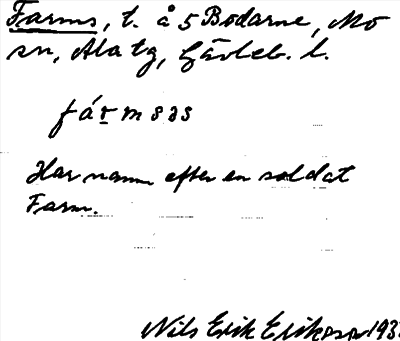 Farms, t. å 5 Bodarne, Mo
sn, Ala tg, Gävleb. l.
fá r m s əs
Har namn efter en soldat
Farm.
Nils Erik Eriksson 193